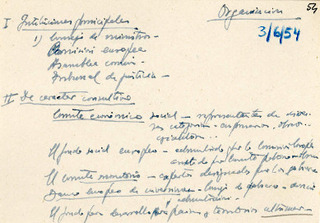 Organización
54
3/6/54
I Instituciones principales
1) Consejo de ministros -
Comisión europea
Asamblea común -
Tribunal de justicia -
II De carácter consultivo
Comité económico social - representantes de
categorías - empresarios, obreros
El fondo social europeo - administrado por la Comisión
asistido por Comité
El comité monetario - expertos designados por los gobiernos
Banco europeo de inversiones - Consejo de gobierno -
El fondo para desarrollo países y territorios ultramar -